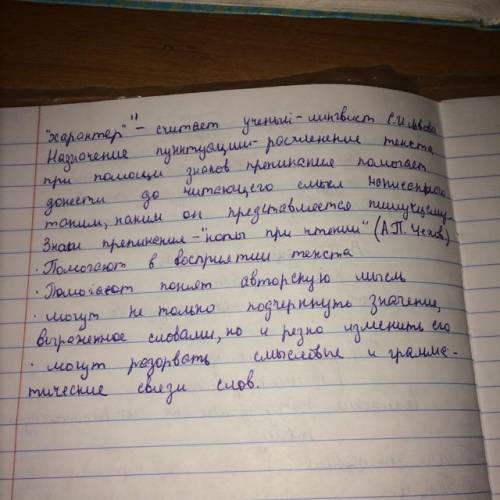 "характер"" - считает ученый-лингвист С.И.Львова
Назначение пунктуации-расчленение текста,
при помощи знаков препинание помогает
донести до читающего смысл написанного
таким, каким он представляется пишущему.
Знаки препинения-"ноты при чтении" (А.П. Чехов)
· Помогают в восприятии текста
· Помогают понят авторскую мысль
· могут не только подчеркнуть значение,
выраженное словами, но и резко изменить его
· могут разорвать смысловые и грамма-
тические связи слов.